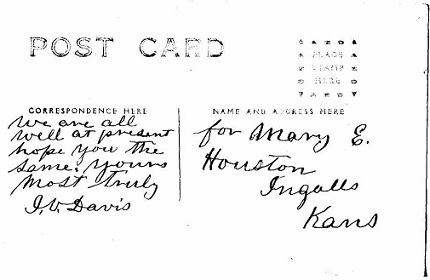 POST CARD
PLACE
STAMP
HERE
CORRESPONDENCE HERE
NAME AND ADDRESS HERE
We are all
well at present
hope you the
same. yours
Most truly
I.V. Davis
for Mary E.
Houston
Ingalls
Kans